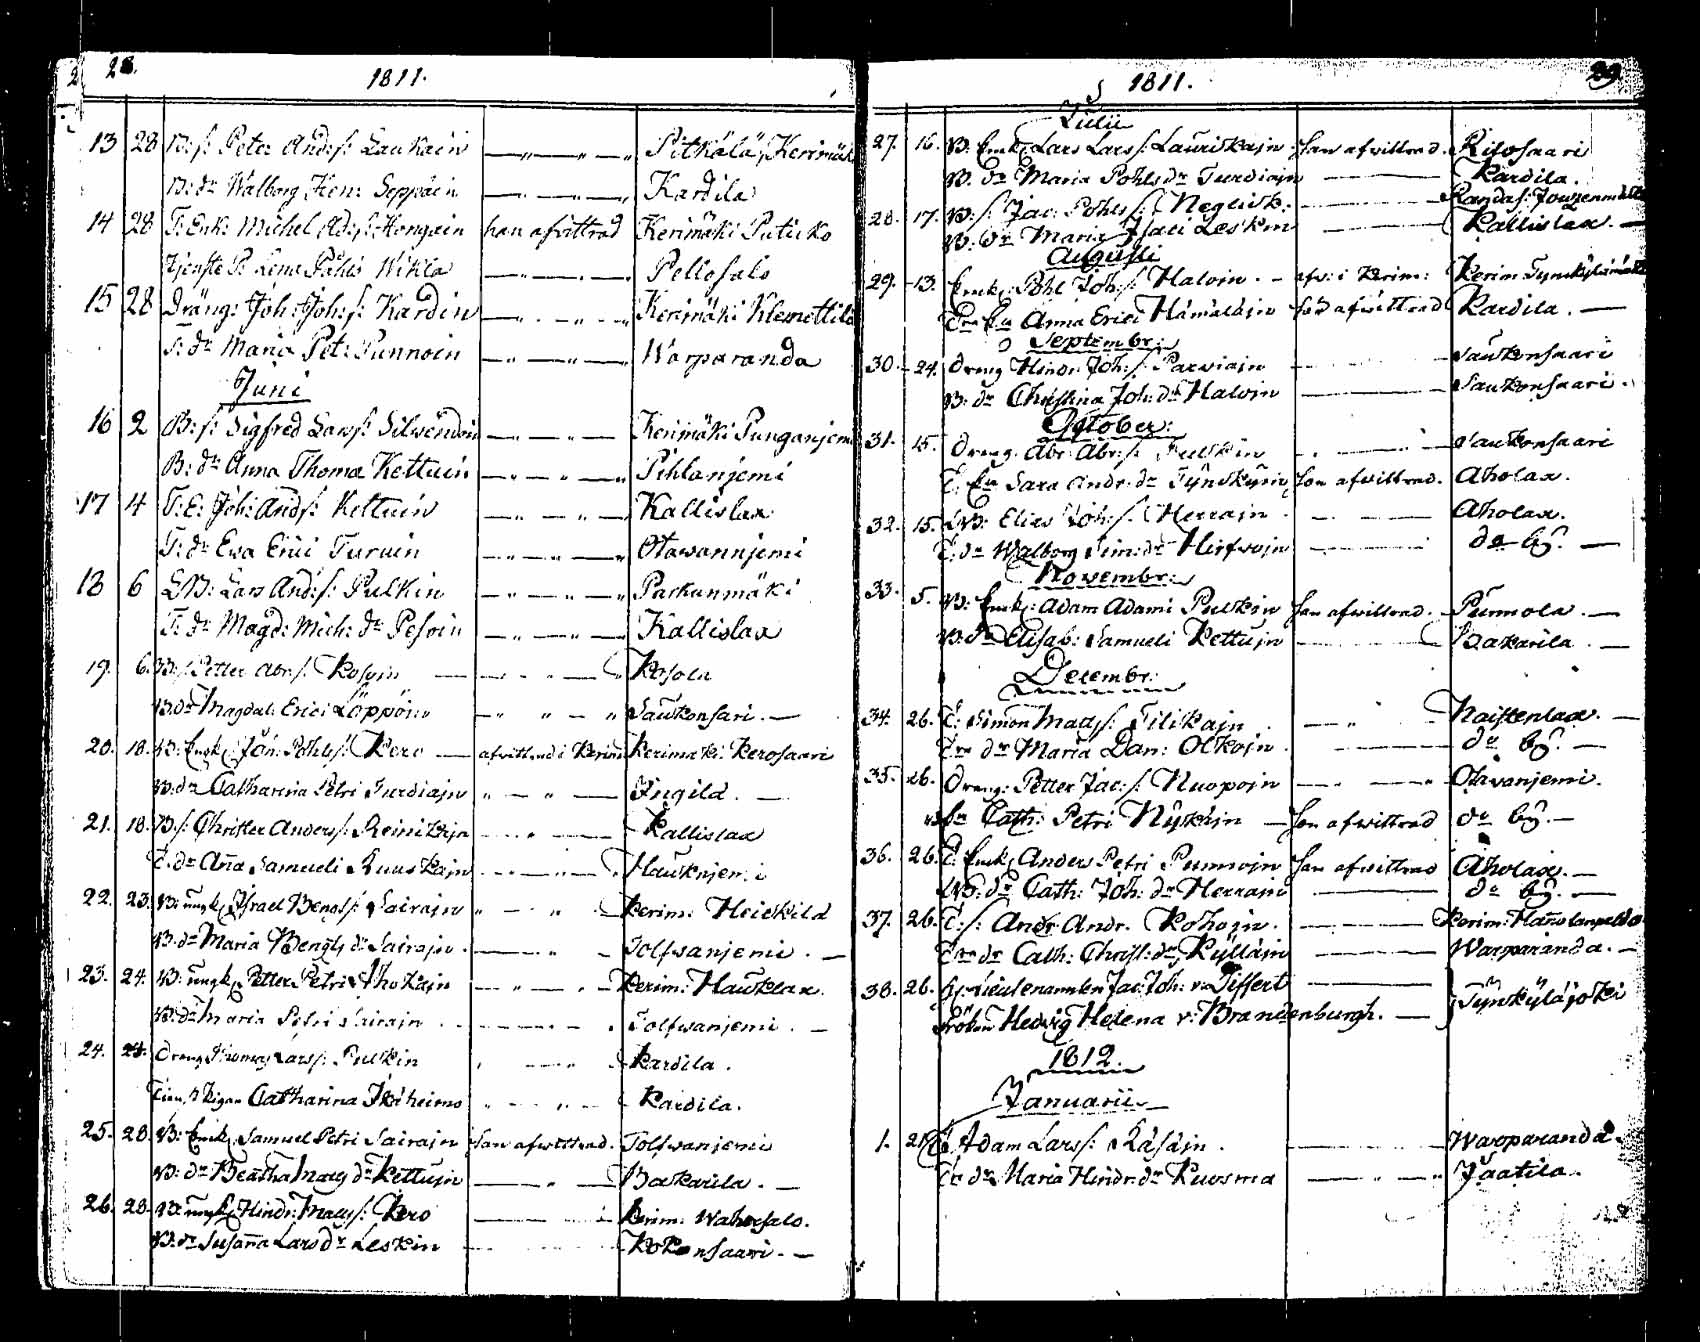 28.
1811.
13 28 B: s: Peter And: s: Laukain Pitkälä, Kerimäki
B: dr Walborg Hen: Seppäin Kardila
14 28 T: Enk: Michel And: s: Hongain han afvittrad Kerimäki Puticko
tjenste P. Lena Påhls Wikla Pellosalo
15 28 Dräng: Joh: Joh: s: Kardin Kerimäki Klemettilä
T: dr Maria Pet: Punnoin Warparanda
Juni
16 2 B: s: Sigfred Lars s: Silwendoin Kerimäki Punganjemi
B: dr Anna Thomæ Kettuin Pihlanjemi
17 4 T: E: Joh: And s: Kettuin Kallislax
T: dr Ewa Erici Turuin Otawannjemi
18 6 LB: Lars And: s: Pulkin Parkunmäki
T: dr Magd: Mich: dr Pesoin Kallislax
19. 6. B: s: Petter Abr: s: Kosoin Kosola
B: dr Magdal: Erici Löppön Saukonsari. —
20. 18. B: Enk: Joh: Pohls s: Kero — afvittrad i Kerim Kerimäki Kerosaari
B: dr Catharina Petri Turdiajn Ingild. —
21. 18. B: s: Christer Anders s: Reinikajn Kallislax
T. dr Aña Samueli Kuuskajn Hauknjemi
22. 23. B: ungk: Israel Bengts s: Sairajn Kerim: Heickilä
B: dr Maria Bengts dr Sairajn. Tolfwanjemi. —
23. 24. B: ungk: Petter Petri Ahokajn Kerim: Hauklax.
B: dr Maria Petri Sairajn Tolfwanjemi. —
24. 24. Dreng Thomas Lars s: Pulkin Kardila.
Tien. Pigan Catharina Ikäheimo Kardila.
25. 28. B: Enk: Samuel Petri Sairajn han afwittrad. Tolfwanjemi
B: dr Beatha Mats dr Kettujn Backarila. —
26. 28. B: ungk: Hindr: Mats s: Kero Kerim: Wahersalo.
B: dr Susaña Lars dr Leskin Kokonsaari. —
29.
1811.
Julii
27. 16. B: Enk: Lars Lars s: Lauriskajn han afwittrad. Ritosaari
B. dr Maria Pohls dr Turdiajn Kardila.
28. 17. B: s: Jac: Pohls s: Neglick: Randas: Jouzenmäki
B: dr Maria Isaci Leskin Kallislax. —
Augusti
29. 13. Enk: Pohl Joh: s: Halvin. — afv: i Kerim: Kerim: Tynskylämäki
Enk: Anna Erici Hämäläjn hon afwittrad Kardila. —
Septembr:
30. 24. Dreng Hindr: Joh: s: Parviajn Saukonsaari
B: dr Christina Joh: dr Halvin Saukonsaari.
October:
31. 15. Dreng. Abr: Abr: s: Pulkin Saukonsaari
E. Sara Andr: dr Tynskynin hon afwittrad. Aholax.
32. 15. LB: Elias Joh: s: Herrajn Aholax.
T: dr Walborg Sim: dr Hirfwojn do bÿ. —
Novembr:
33. 5. B: Enk: Adam Adami Pulkin han afwittrad. Punnola. —
B: dr Elisab: Samueli Kettujn Backarila. —
Decembr:
34. 26. T: Simon Mats s: Tilikajn Naistenlax. —
dr Maria Dan: Olkojn do bÿ. —
35. 26. Dreng: Petter Jac: s: Nuopojn Otavanjemi.
Cath: Petri Nÿkäjn hon afwittrad do bÿ. —
36. 26. T: Enk: Anders Petri Punnojn han afwittrad Aholax. —
LB: dr Cath: Joh: dr Herrajn do bÿ. —
37. 26. T: s: Andr: Andr. Kohojn. Kerim:
dr Cath: Christ: dr Kylläjn Warparanda. —
38. 26. Hr Lieutenannten Jac: Joh: v: Tiffert Tynskyläjoki
Fröken Hedvig Helena v: Brandenburgh. —
1812.
Januarii
1. Adam Lars s: Käsäjn. Warparanda.
dr Maria Hindr: dr Kuosma Jaatila.